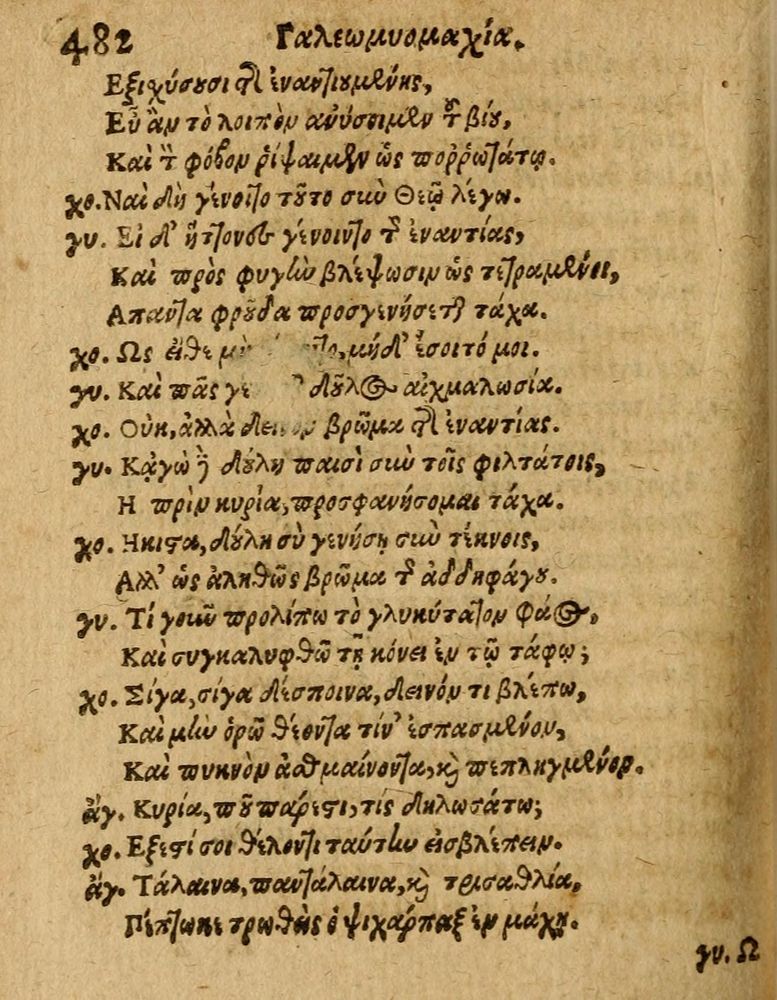 482 Γαλεωμυομαχία.
Εξιχύσουσι τῆς ἐναντιουμένης,
Εὖ ἂν τὸ λοιπὸν ἀνύσοιμεν τοῦ βίου,
Καὶ τὸν φόβον ῥίψαιμεν ὡς πορῥωτάτῳ.
χο. Ναὶ δὴ γένοιτο τοῦτο σὺν Θεῷ λέγω.
γυ. Εἰ δ' ἥττονες γένοιντο τῆς ἐναντίας,
Καὶ πρὸς φυγὴν βλέψωσιν ὡς τετραμμένοι,
Απαντα φροῦδα προσγενήσεται τάχα.
χο. Ως εἴθε μὴ , μηδ' ἔσοιτό μοι.
γυ. Καὶ πᾶς δοῦλος αἰχμαλωσία.
χο. Οὐκ, ἀλλὰ βρῶμα τῆς ἐναντίας.
γυ. Κᾀγὼ δούλη παισὶ σὺν τοῖς φιλτάτοις,
Η πρὶν κυρία, προσφανήσομαι τάχα.
χο. Ηκιστα, δούλη σὺ γενήσῃ σὺν τέκνοις,
Αλλ' ὡς ἀληθῶς βρῶμα τῆς ἀδδηφάγου.
γυ. Τί γοῦν προλίπω τὸ γλυκύτατον φάος,
Καὶ συγκαλυφθῶ τῇ κόνει ἐν τῷ τάφῳ;
χο. Σίγα, σίγα δέσποινα, δεινόν τι βλέπω,
Καὶ μὴν ὁρῶ θέοντα τίν' ἐσπασμένον,
Καὶ πυκνὸν ἀσθμαίνοντα, καὶ πεπληγμένον.
ἄγ. Κυρία, ποῦ πάρεστι, τίς δηλωσάτω;
χο. Εξεστί σοι θέλοντι ταύτην εἰσβλέπειν.
ἄγ. Τάλαινα, παντάλαινα, καὶ τρισαθλία,
Πέπτωκε τρωθεὶς ὁ ψιχάρπαξ ἐν μάχῃ.
γυ. Ω